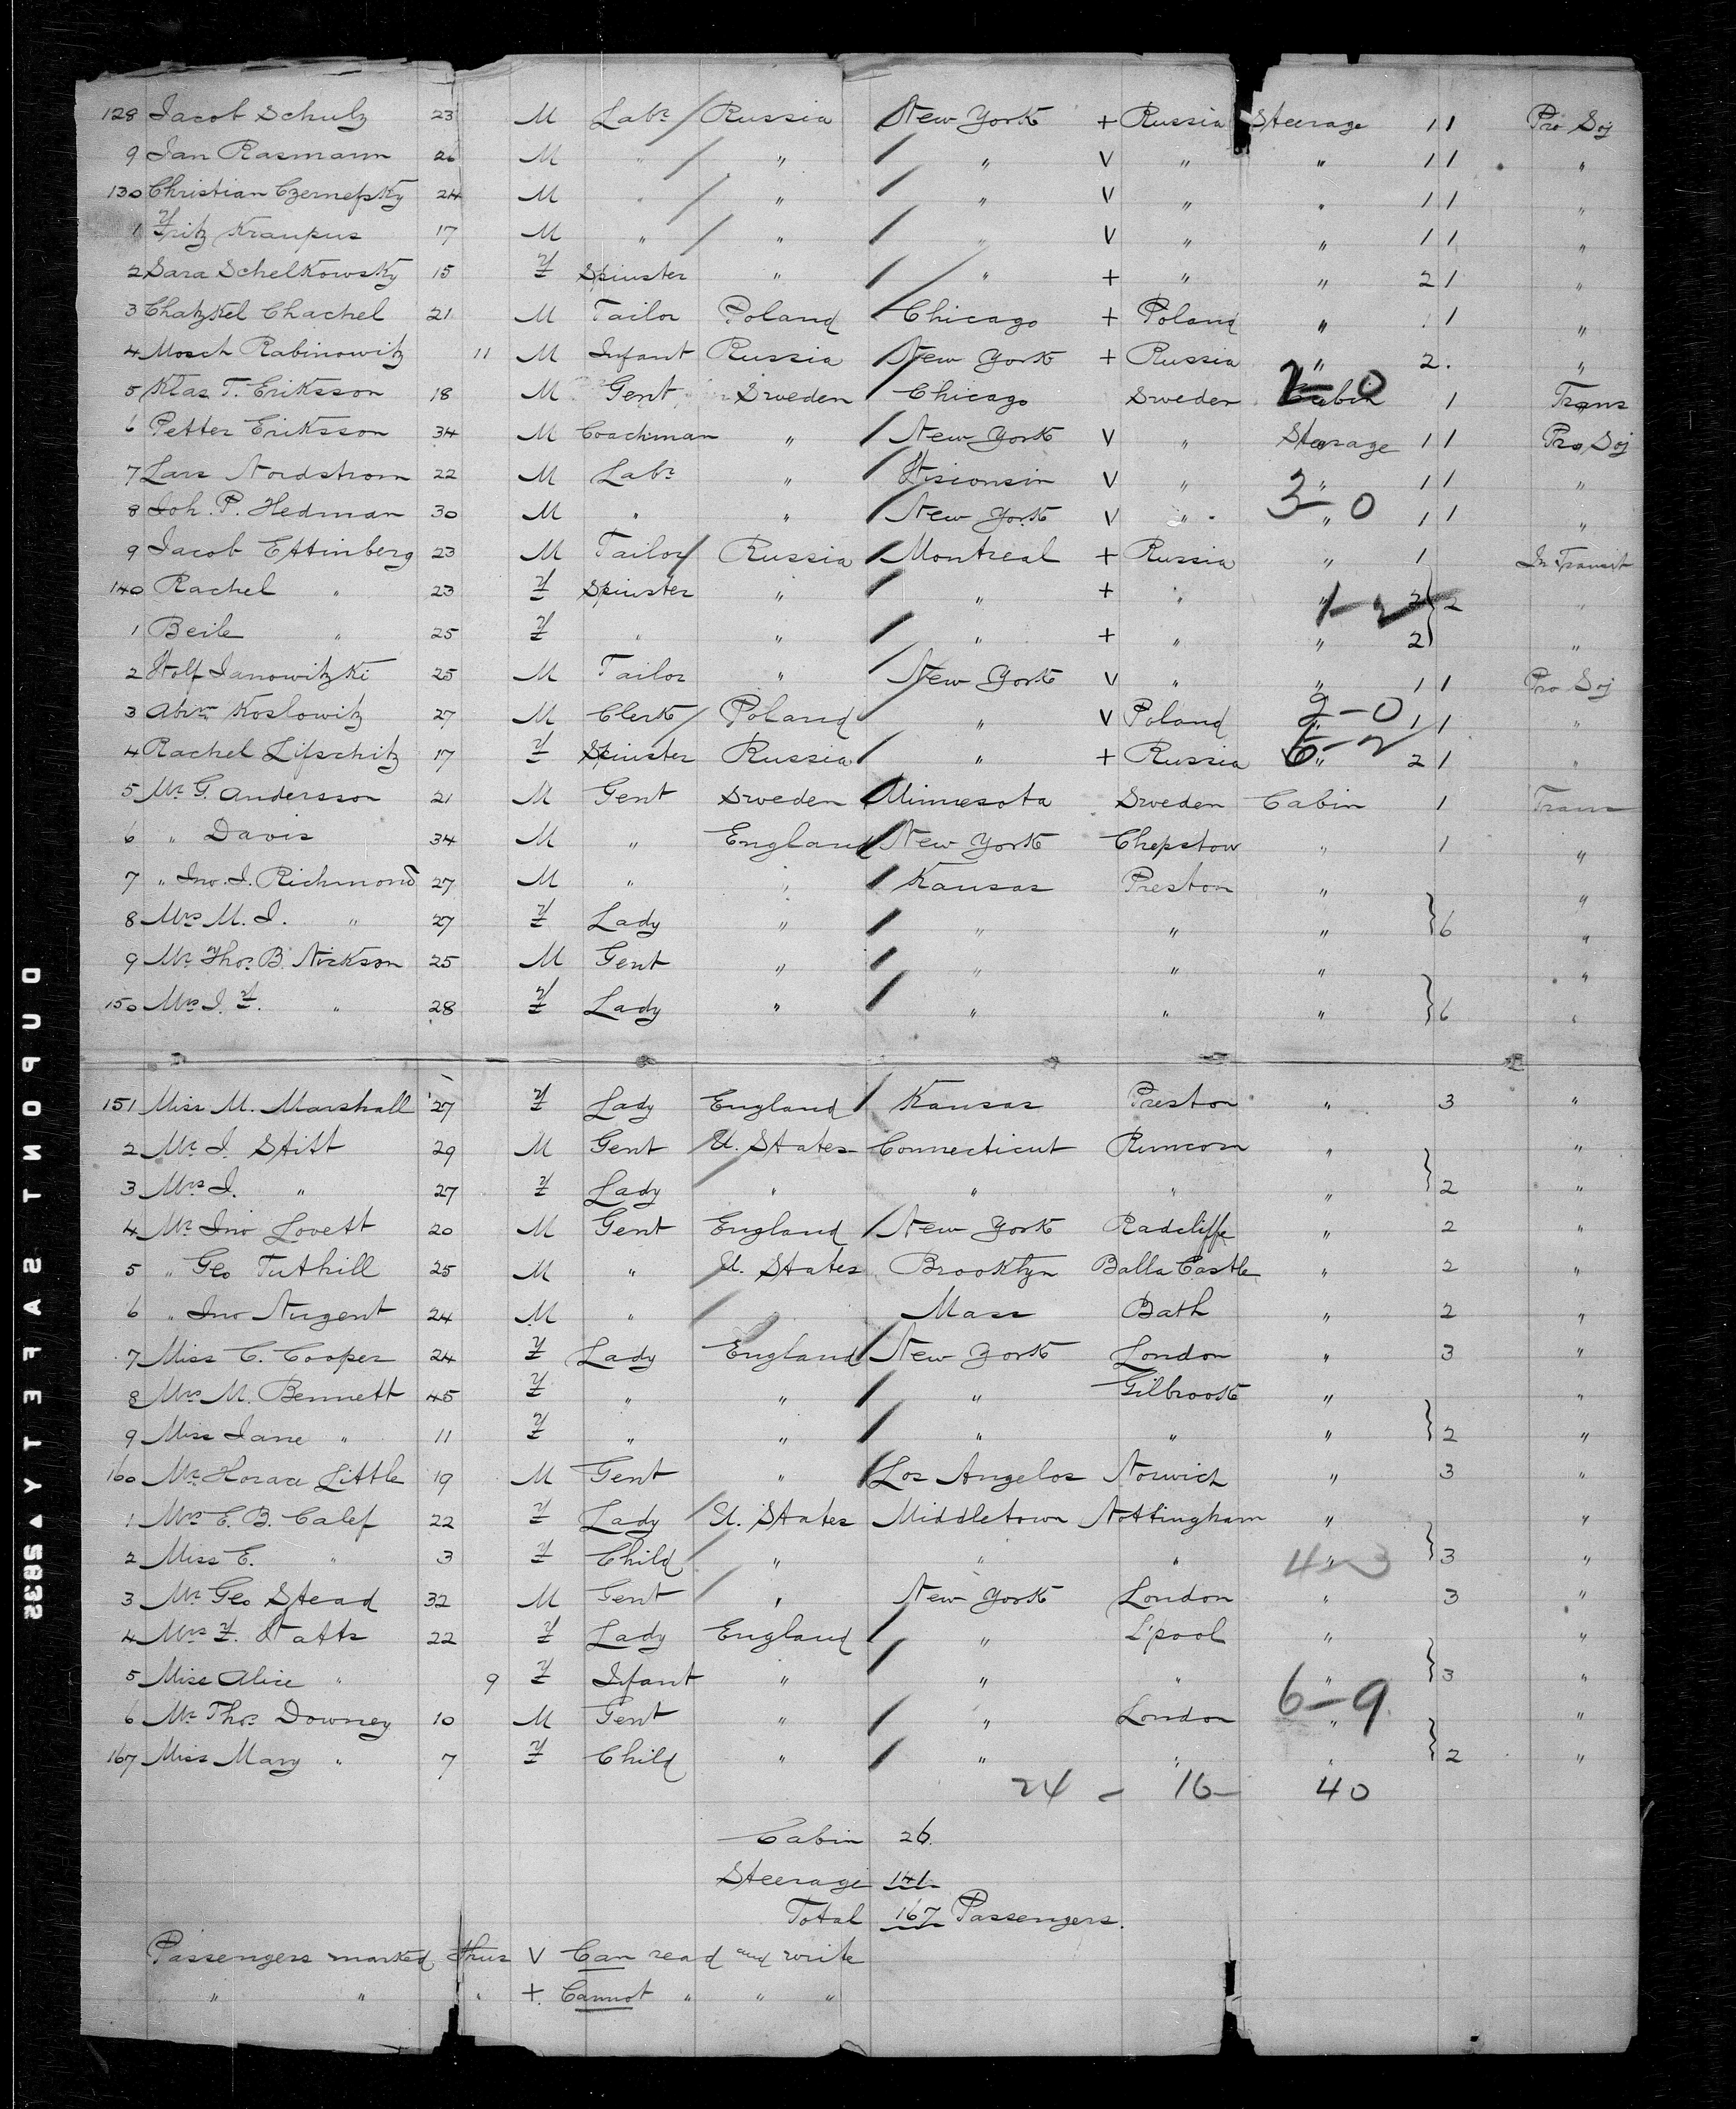 128 Jacob Schulz 23 M Labr Russia New York + Russia Steerage 1 1 Pro Soj
9 Jan Rasmann 26 M " " " V " " 1 1 "
130 Christian Czernefsky 24 M " " " V " " 1 1 "
1 Fritz Kraupus 17 M " " " V " " 1 1 "
2 Sara Schelkowsky 15 F Spinster " " + " " 2 1 "
3 Chatzkel Chachel 21 M Tailor Poland Chicago + Poland " 1 1 "
4 Mosch Rabinowitz 11 M Infant Russia New York + Russia " 2. "
2-0
5 Klas T. Eriksson 18 M Gent Sweden Chicago Sweden Cabin 1 Trans
6 Petter Eriksson 34 M Coachman " New York V " Steerage 1 1 Pro Soj
7 Lars Nordstrom 22 M Labr " Wisconsin V " " 1 1 "
3-0
8 Joh. P. Hedman 30 M " " New York V " " 1 1 "
9 Jacob Ettinberg 23 M Tailor Russia Montreal + Russia " 1 In Transit
140 Rachel " 23 F Spinster " " + " " 2 } 2 "
1-2
1 Beile " 25 F " " " + " " 2 "
2 Wolf Janowitzki 25 M Tailor " New York V " " 1 1 Pro Soj
3 Abrm Koslowitz 27 M Clerk Poland " V Poland " 1 1 "
2-0
4 Rachel Lifschitz 17 F Spinster Russia " + Russia " 2 1 "
6-2
5 Mr G. Andersson 21 M Gent Sweden Minnesota Sweden Cabin 1 Trans
6 " Davis 34 M " England New York Chepstow " 1 "
7 " Jno. J. Richmond 27 M " " Kansas Preston " "
8 Mrs M. J. " 27 F Lady " " " " } 6 "
9 Mr Thos B. Nickson 25 M Gent " " " " "
150 Mrs J. F. " 28 F Lady " " " " } 6 "
151 Miss M. Marshall 27 F Lady England Kansas Preston " 3 "
2 Mr J. Stitt 29 M Gent U. States Connecticut Runcorn " "
3 Mrs J. " 27 F Lady " " " " } 2 "
4 Mr Jno Lovett 20 M Gent England New York Radcliffe " 2 "
5 " Geo Tuthill 25 M " U. States Brooklyn Balla Castle " 2 "
6 " Jno Nugent 24 M " " Mass Bath " 2 "
7 Miss C. Cooper 24 F Lady England New York London " 3 "
8 Mrs M. Bennett 45 F " " " Gilbrook " "
9 Miss Jane " 11 F " " " " " } 2 "
160 Mr Horace Little 19 M Gent " Los Angelos Norwich " 3 "
1 Mrs E. B. Calef 22 F Lady U. States Middletown Nottingham " "
2 Miss E. " 3 F Child " " " " } 3 "
4-3
3 Mr Geo Stead 32 M Gent " New York London " 3 "
4 Mrs F. Watts 22 F Lady England " L'pool " "
5 Miss Alice " 9 F Infant " " " " } 3 "
6-9
6 Mr Thos Downey 10 M Gent " " London " "
167 Miss Mary " 7 F Child " " " " } 2 "
24 - 16 - 40
Cabin 26.
Steerage 141
Total 167 Passengers.
Passengers marked thus V Can read and write
" " " +. Cannot " " "
DUPONT SAFETY 2583S